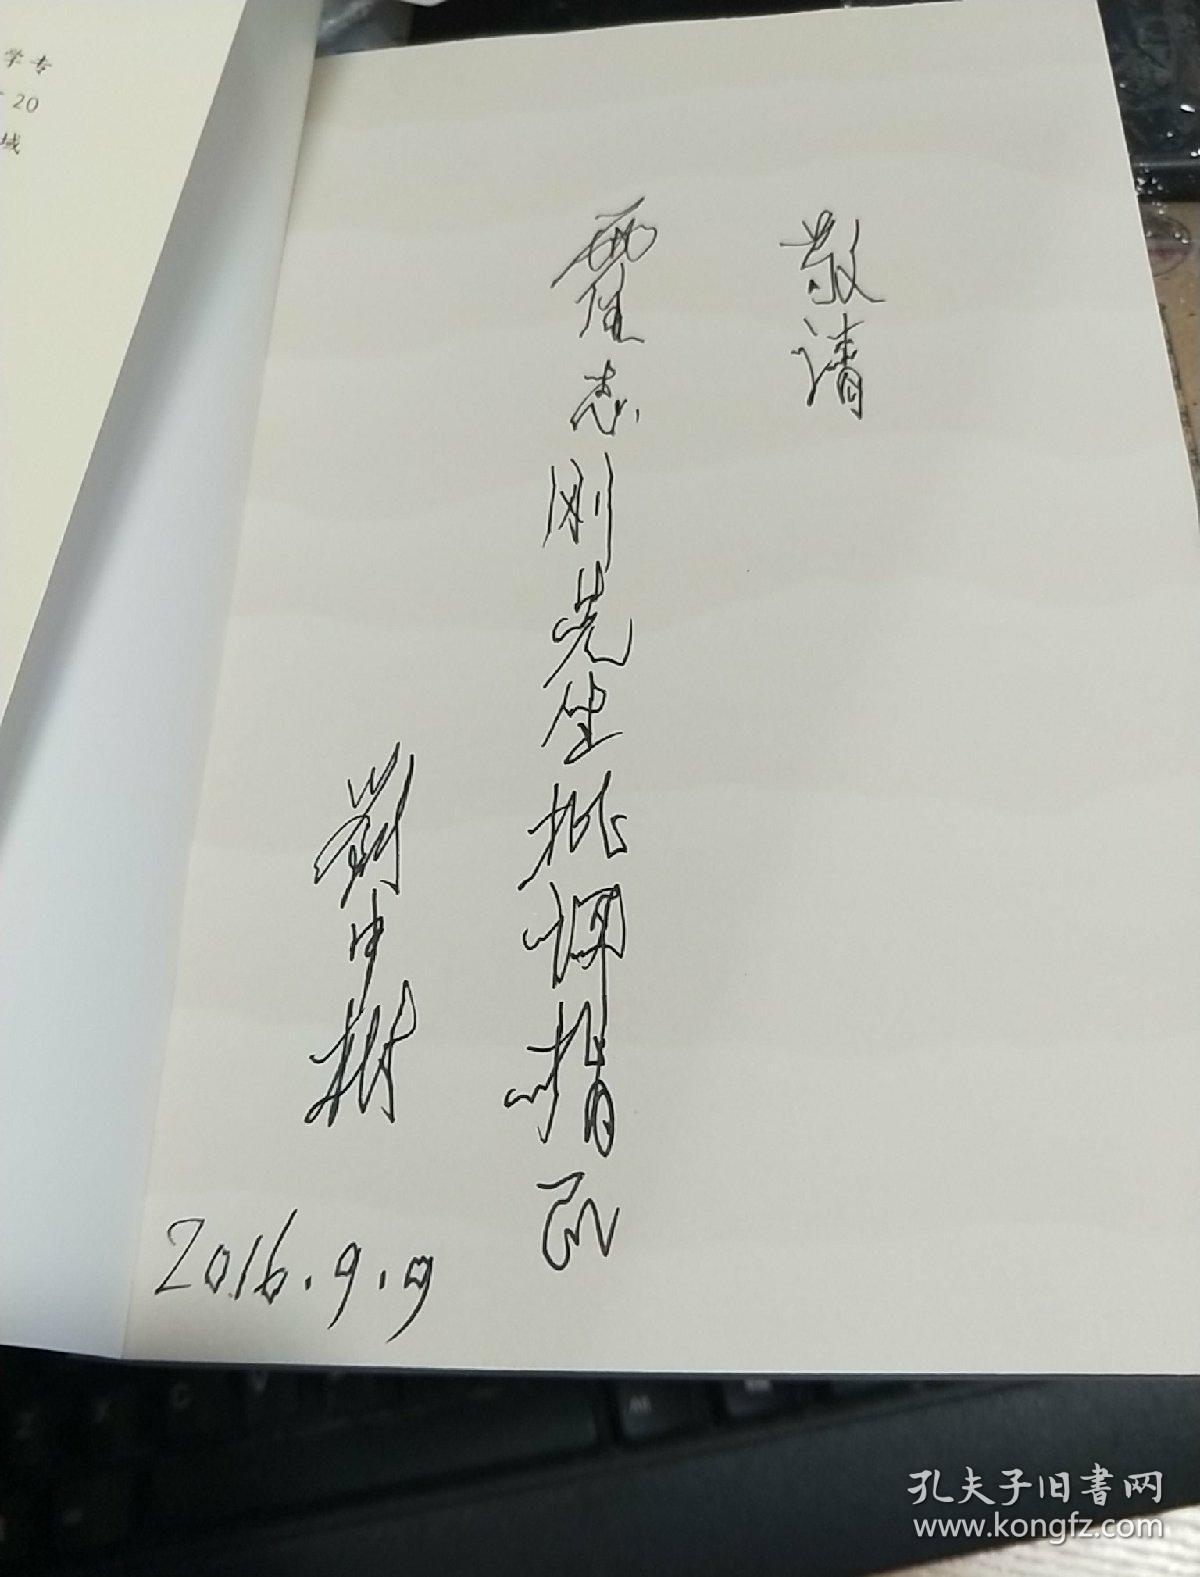 敬请
霍志刚先生批评指正
刘中树
2016.9.9
学专
20
域
孔夫子旧书网
www.kongfz.com